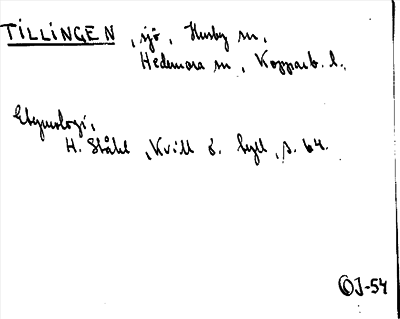 TILLINGEN, sjö, Husby sn,
Hedemora sn, Kopparb. l.
Etymologi,
H. Ståhl, Kvill o. hyll, s. 64.
OJ-54